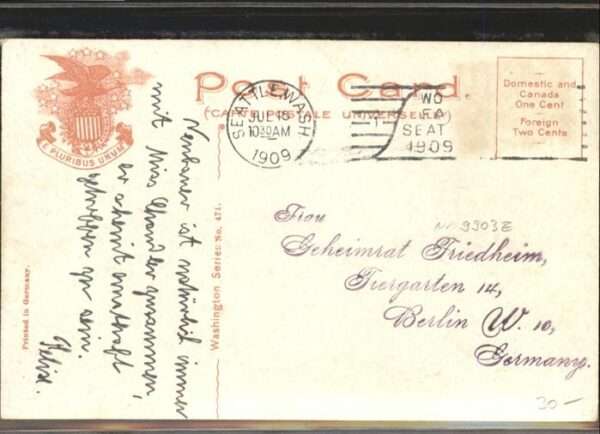 Post Card
(CARTE POSTALE UNIVERSELLE)
E PLURIBUS UNUM
SEATTLE, WASH.
JUL 18
10 30 AM
1909
WO
FA
SEAT
1909
Domestic and
Canada
One Cent
Foreign
Two Cents
Neubauer ist natürlich immer
mit Miss Chandler zusammen,
er scheint ernsthaft
getroffen zu sein.
Felix.
Washington Series No. 471.
Printed in Germany.
Frau
No 9303E
Geheimrat Friedheim,
Tiergarten 14,
Berlin W. 10,
Germany.
30-